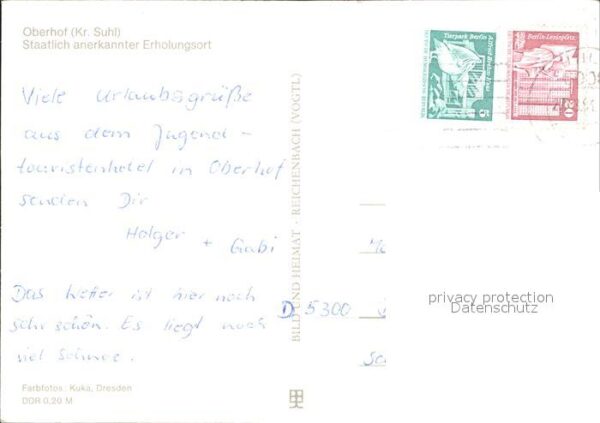 Oberhof (Kr. Suhl)
Staatlich anerkannter Erholungsort
Viele Urlaubsgrüße
aus dem Jugend-
touristenhotel in Oberhof
senden Dir
Holger + Gabi
Das Wetter ist hier noch
sehr schön. Es liegt noch
viel Schnee.
Farbfotos: Kuka, Dresden
DDR 0,20 M
BILD UND HEIMAT · REICHENBACH (VOGTL)
Tierpark Berlin
5
Berlin-Leninplatz
20
D 5300
privacy protection
Datenschutz